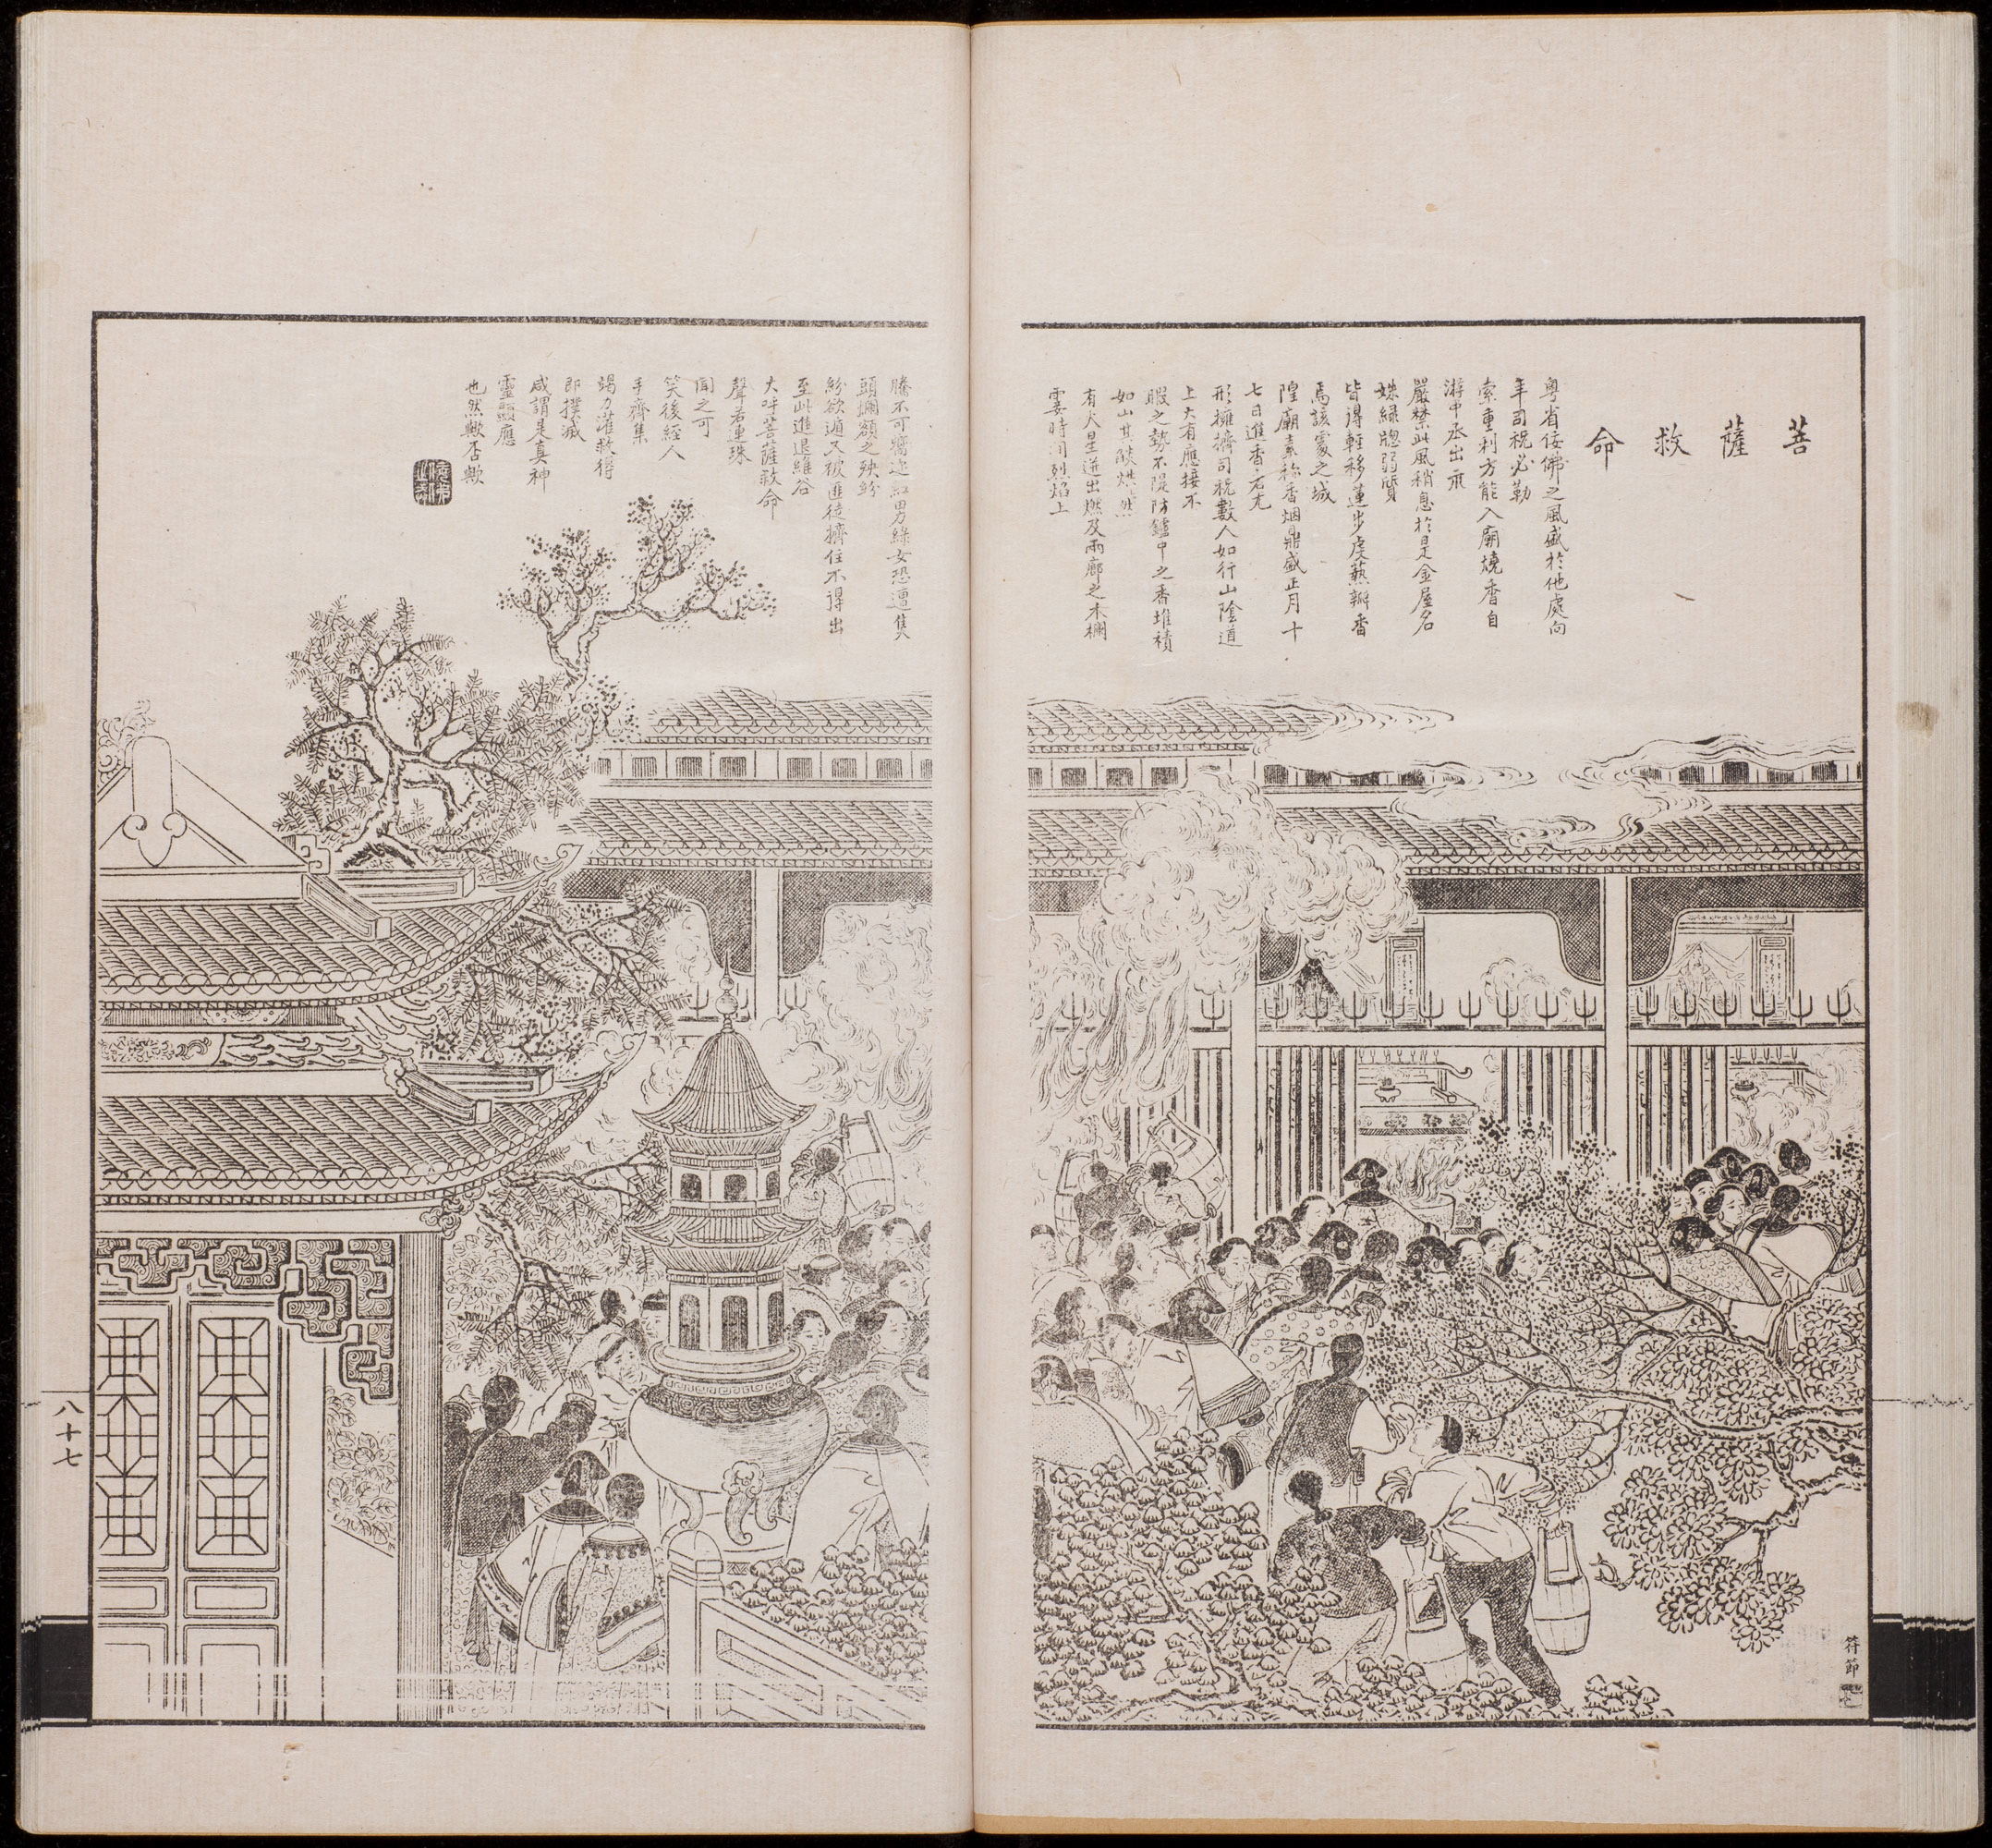 菩薩救命
粵省佞佛之風盛於他處向
年司祝必勒
索重利方能入廟燒香自
游中丞出示
嚴禁此風稍息於是金屋名
姝綠牕弱質
皆得輕移蓮步虔爇瓣香
焉該處之城
隍廟素稱香烟鼎盛正月十
七日進香者尤
形擁擠司祝數人如行山陰道
上大有應接不
暇之勢不隄防鑪中之香堆積
如山其燄烘然
有火星迸出燃及兩廊之木欄
霎時間烈焰上
騰不可嚮邇紅男綠女恐遭焦
頭爛額之殃紛
紛欲遁又被匪徒擠住不得出
至此進退維谷
大呼菩薩救命
聲若連珠
聞之可
笑後經人
手齊集
竭力灌救得
即撲滅
咸謂是真神
靈顯應
也然歟否歟
符節
八十七